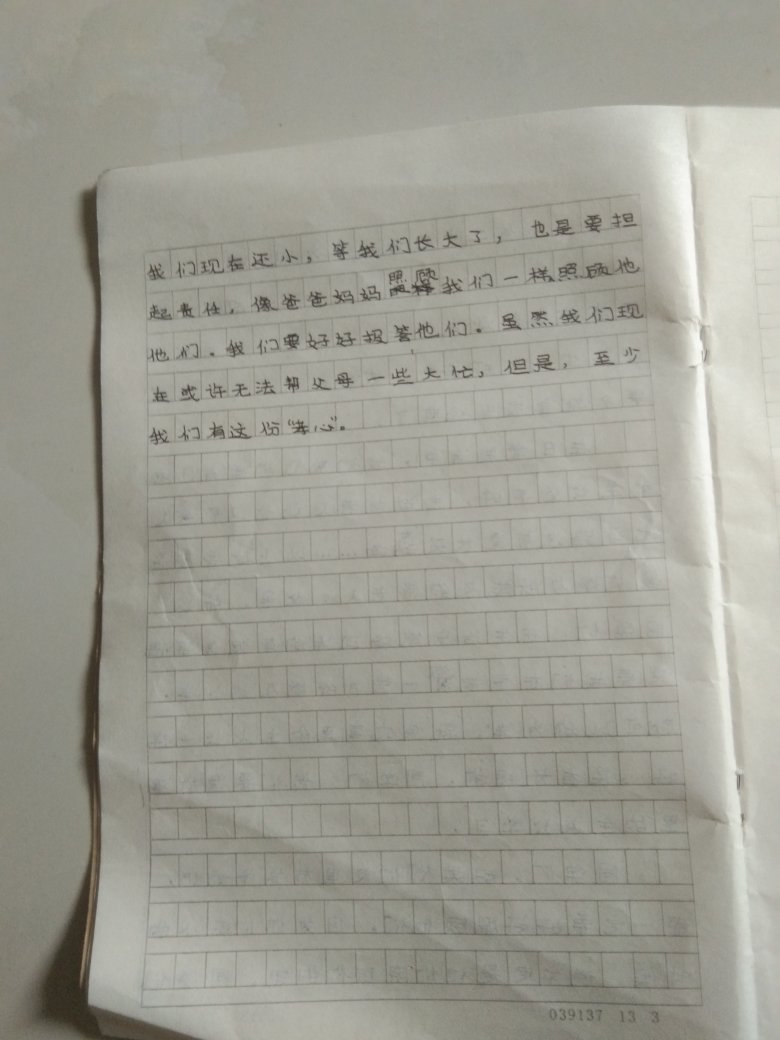 我们现在还小，等我们长大了，也是要担
起责任，像爸爸妈妈照顾我们一样照顾他
他们。我们要好好报答他们。虽然我们现
在或许无法帮父母一些大忙，但是，至少
我们有这份“孝心”。
039137 13 3